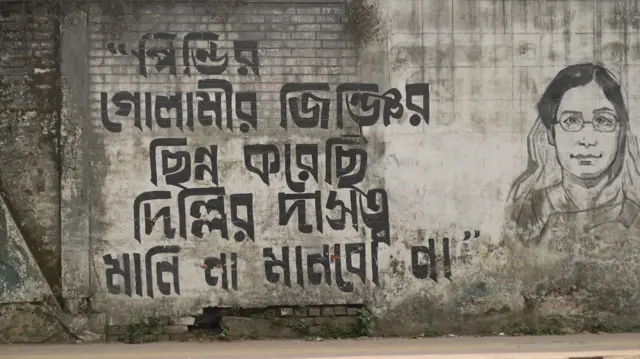 “পিন্ডির
গোলামীর জিন্জির
ছিন্ন করেছি
দিল্লির দাসত্ব
মানি না মানবো না”